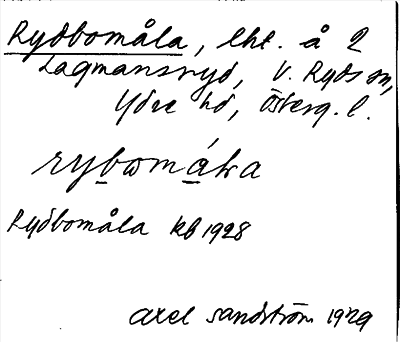 Rydbomåla, lht. å 2
Lagmansryd, V. Ryds sn,
Ydre hd, Österg. l.
rybωmála
Rydbomåla kb 1928
Axel Sandström 1929